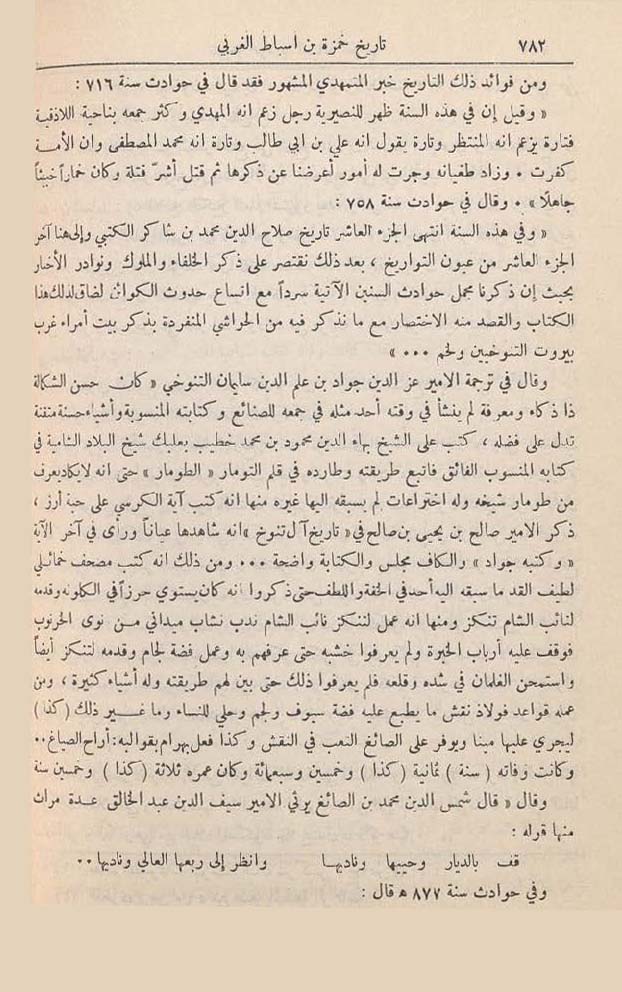 ٧٨٢ تاريخ حمزة بن اسباط الغربي
ومن فوائد ذلك التاريخ خبر المتمهدي المشهور فقد قال في حوادث سنة ٧١٦ :
« وقيل إن في هذه السنة ظهر للنصيرية رجل زعم انه المهدي وكثر جمعه بناحية اللاذقية
فتارة يزعم انه المنتظر وتارة يقول انه علي بن ابي طالب وتارة انه محمد المصطفى وان الأمة
كفرت ٠ وزاد طغيانه وجرت له أمور أعرضنا عن ذكرها ثم قتل أشرّ قتلة وكان خماراً خبيثاً
جاهلاً » ٠ وقال في حوادث سنة ٧٥٨ :
« وفي هذه السنة انتهى الجزء العاشر تاريخ صلاح الدين محمد بن شاكر الكتبي وإلى هنا آخر
الجزء العاشر من عيون التواريخ ، بعد ذلك نقتصر على ذكر الخلفاء والملوك ونوادر الأخبار
بحيث إن ذكرنا مجمل حوادث السنين الآتية سرداً مع اتساع حدوث الكوائن لضاق لذلك هذا
الكتاب والقصد منه الاختصار مع ما نذكر فيه من الحواشي المنفردة بذكر بيت أمراء غرب
بيروت التنوخيين ولخم ٠٠٠ »
وقال في ترجمة الامير عز الدين جواد بن علم الدين سليمان التنوخي « كان حسن الشكالة
ذا ذكاء ومعرفة لم ينشأ في وقته أحد مثله في جمعه للصنائع وكتابته المنسوبة وأشياء حسنة متقنة
تدل على فضله ، كتب على الشيخ بهاء الدين محمود بن محمد خطيب بعلبك شيخ البلاد الشامية في
كتابه المنسوب الفائق فاتبع طريقته وطارده في قلم التومار « الطومار » حتى انه لا يكاد يعرف
من طومار شيخه وله اختراعات لم يسبقه اليها غيره منها انه كتب آية الكرسي على حبة أرز ،
ذكر الامير صالح بن يحيى بن صالح في « تاريخ آل تنوخ » انه شاهدها عياناً ورأى في آخر الآية
« وكتبه جواد » والكاف مجلس والكتابة واضحة ٠٠٠ ومن ذلك انه كتب مصحف حمائلي
لطيف القد ما سبقه اليه أحد في الخفة واللطف حتى ذكروا انه كان يستوي حرزاً في الكلوته وقدمه
لنائب الشام تنكز ومنها انه عمل لتنكز نائب الشام ندب نشاب ميداني من نوى الخرنوب
فوقف عليه أرباب الخبرة ولم يعرفوا خشبه حتى عرفهم به وعمل فضة لجام وقدمه لتنكز أيضاً
واستمحن الغلمان في شده وقلعه فلم يعرفوا ذلك حتى بين لهم طريقته وله أشياء كثيرة ، ومن
عمله قواعد فولاذ نقش ما يطبع عليه فضة سيوف ولجم وحلي للنساء وما غير ذلك ( كذا )
ليجري عليها مينا ويوفر على الصائغ التعب في النقش وكذا فعل بهرام بقوالبه : أراح الصياغ ٠٠
وكانت وفاته ( سنة ) ثمانية ( كذا ) وخمسين وسبعمائة وكان عمره ثلاثة ( كذا ) وخمسين سنة
وقال « قال شمس الدين محمد بن الصائغ يرثي الامير سيف الدين عبد الخالق عدة مراث
منها قوله :
قف بالديار وحييها وناديها وانظر إلى ربعها العالي وناديها ٠٠
وفي حوادث سنة ٨٧٧ ه‍ قال :